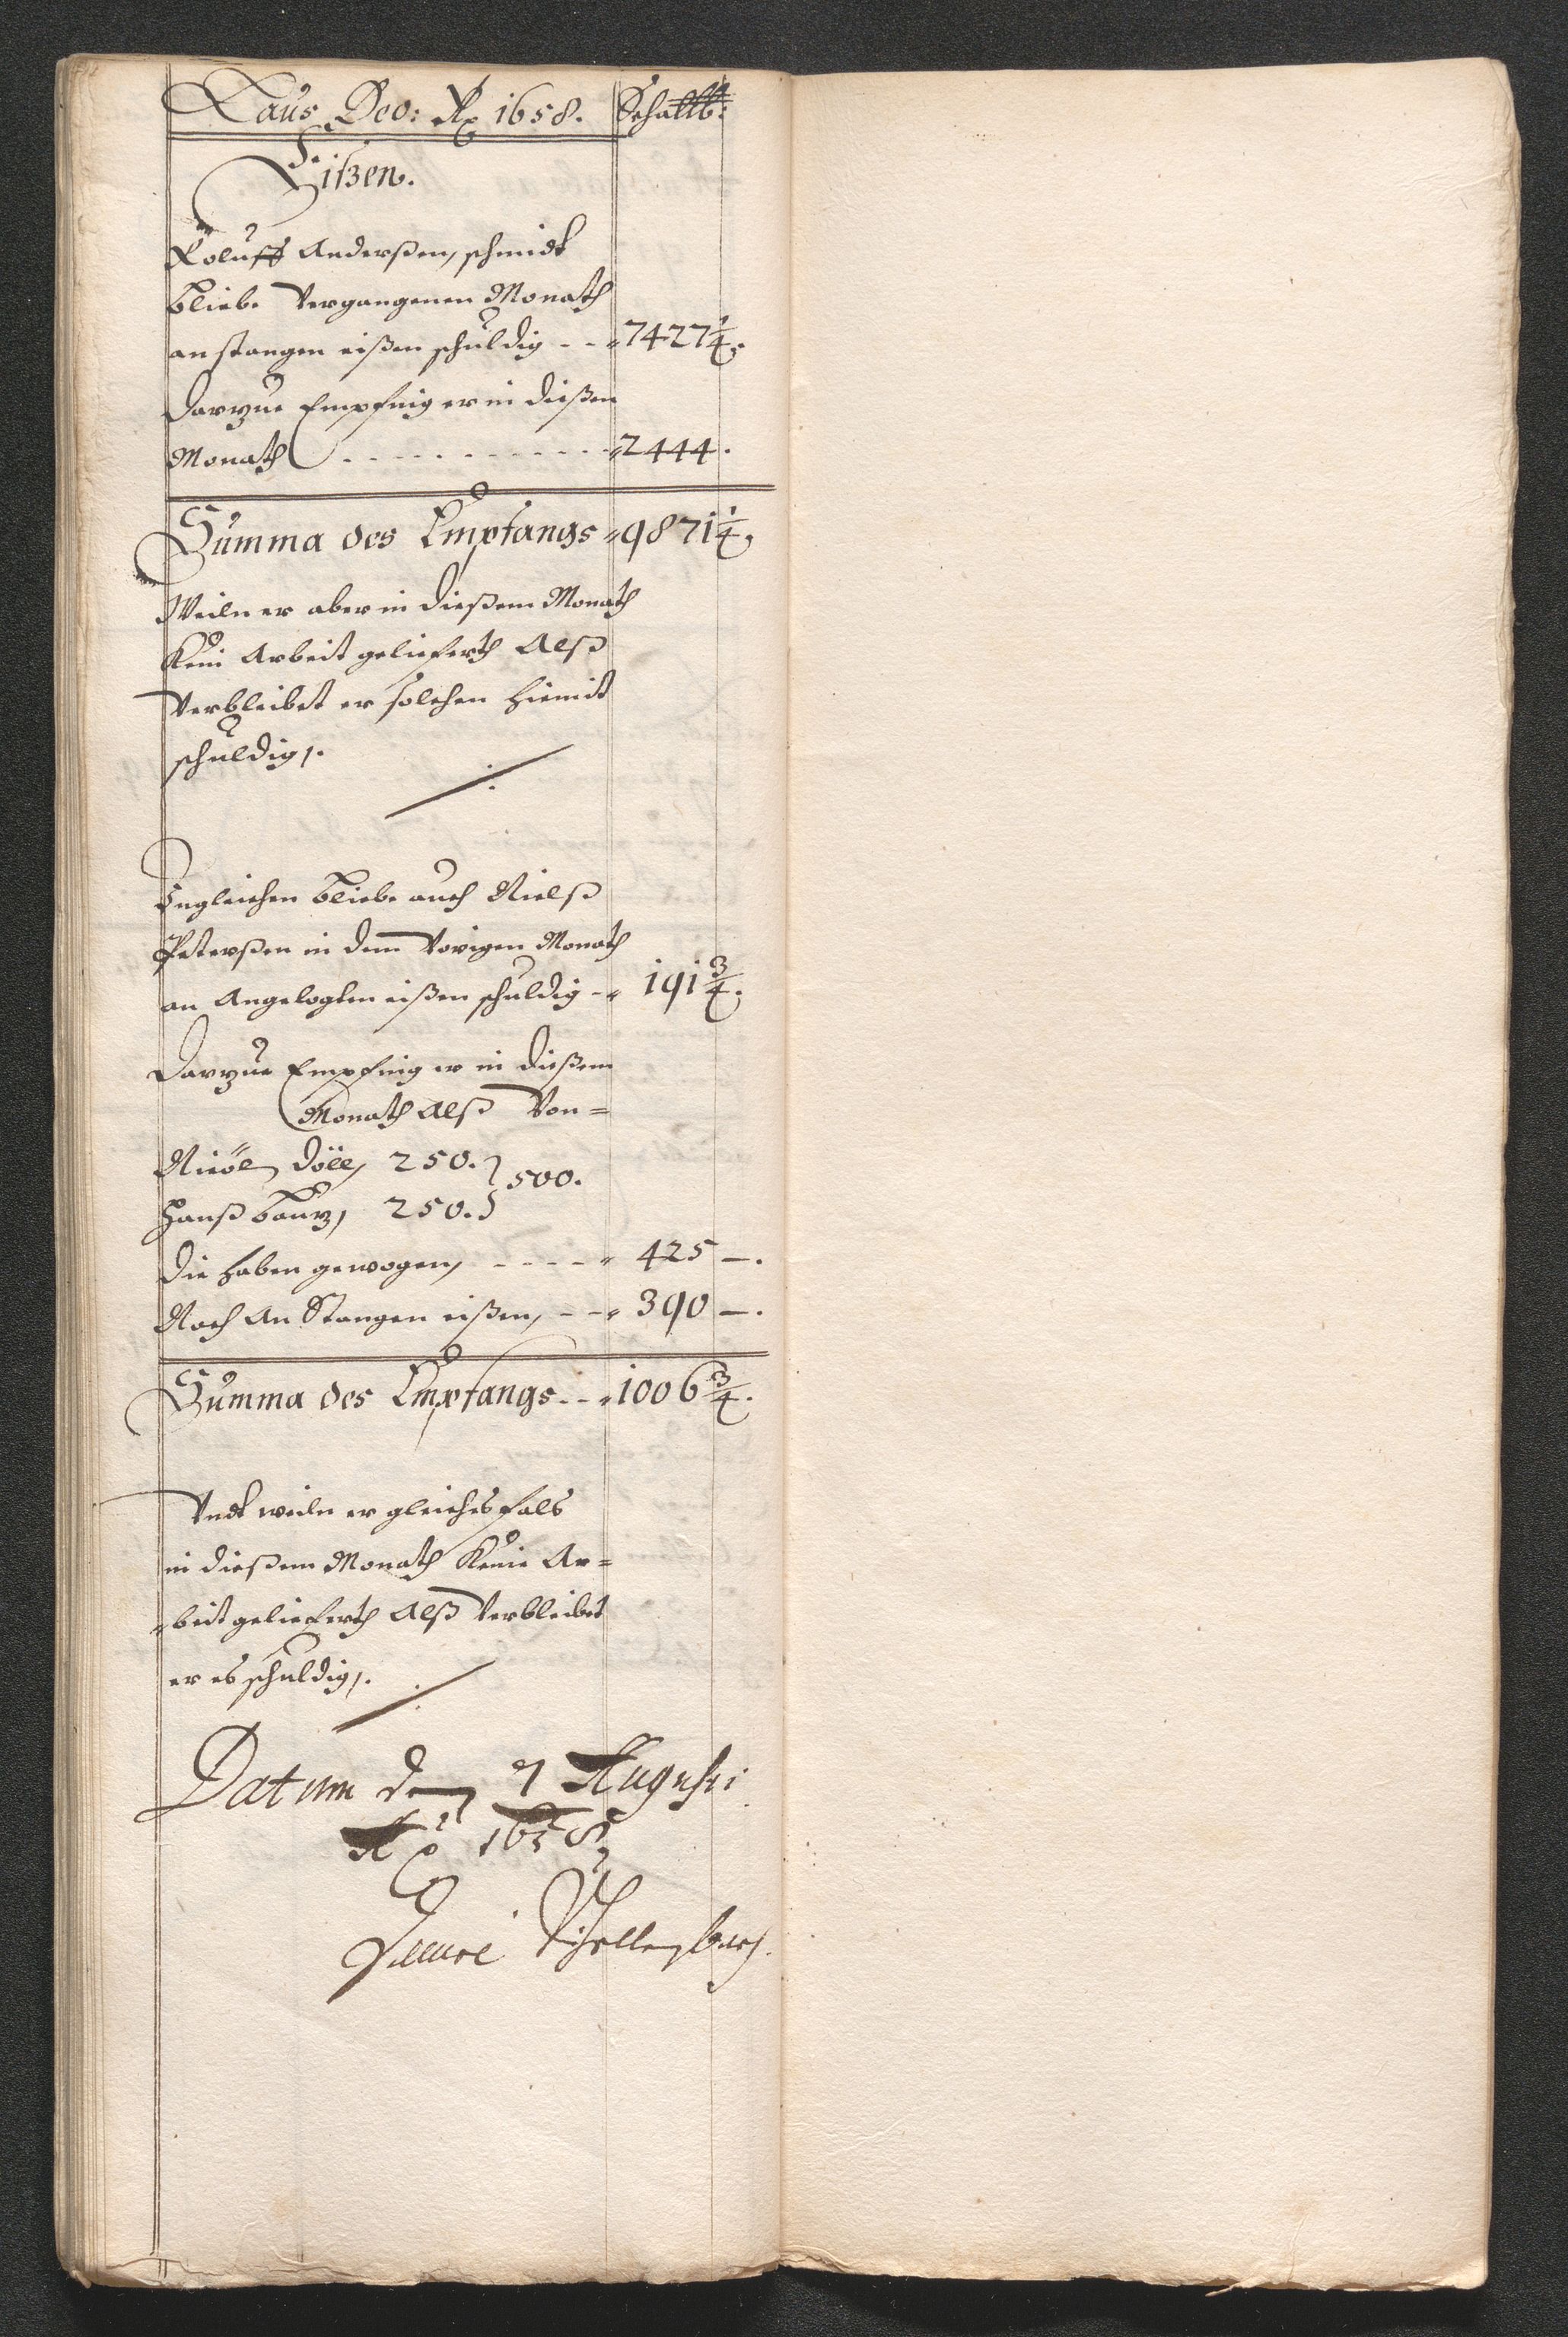 Laus Deo: Ao 1658. Schallb:
Eißen.
Roluff Anderßen, schmidt
bliebe Vergangenen Monath
an stangen eißen schuldig - - „ 7427 1/4.
Darzue Empfing er in dießen
Monath - - - - - - - - - - - „ 2444.
Summa des Empfangs „ 9871 1/4.
Weiln er aber in dießem Monath
Kein Arbeit gelieferth Alß
Verbleibet er solchen hiemit
schuldig/.
Ingleichen bliebe auch Nielß
Peterßen in dem Vorigen Monath
an Angelogten eißen schuldig - „ 191 3/4.
Darzue Empfing er in dießem
Monath Alß Von=
Döll, 250. } 500.
Hanß baur, 250.
Die haben gewogen, - - - - „ 425 —.
Noch An Stangen eißen, - - „ 390 —.
Summa des Empfangs - - „ 1006 3/4.
Vndt weiln er gleichesfals
in dießem Monath Keine Ar=
„beit gelieferth Alß Verbleibet
er es schuldig/.
Datum den 7 Augusti
Ao 1658